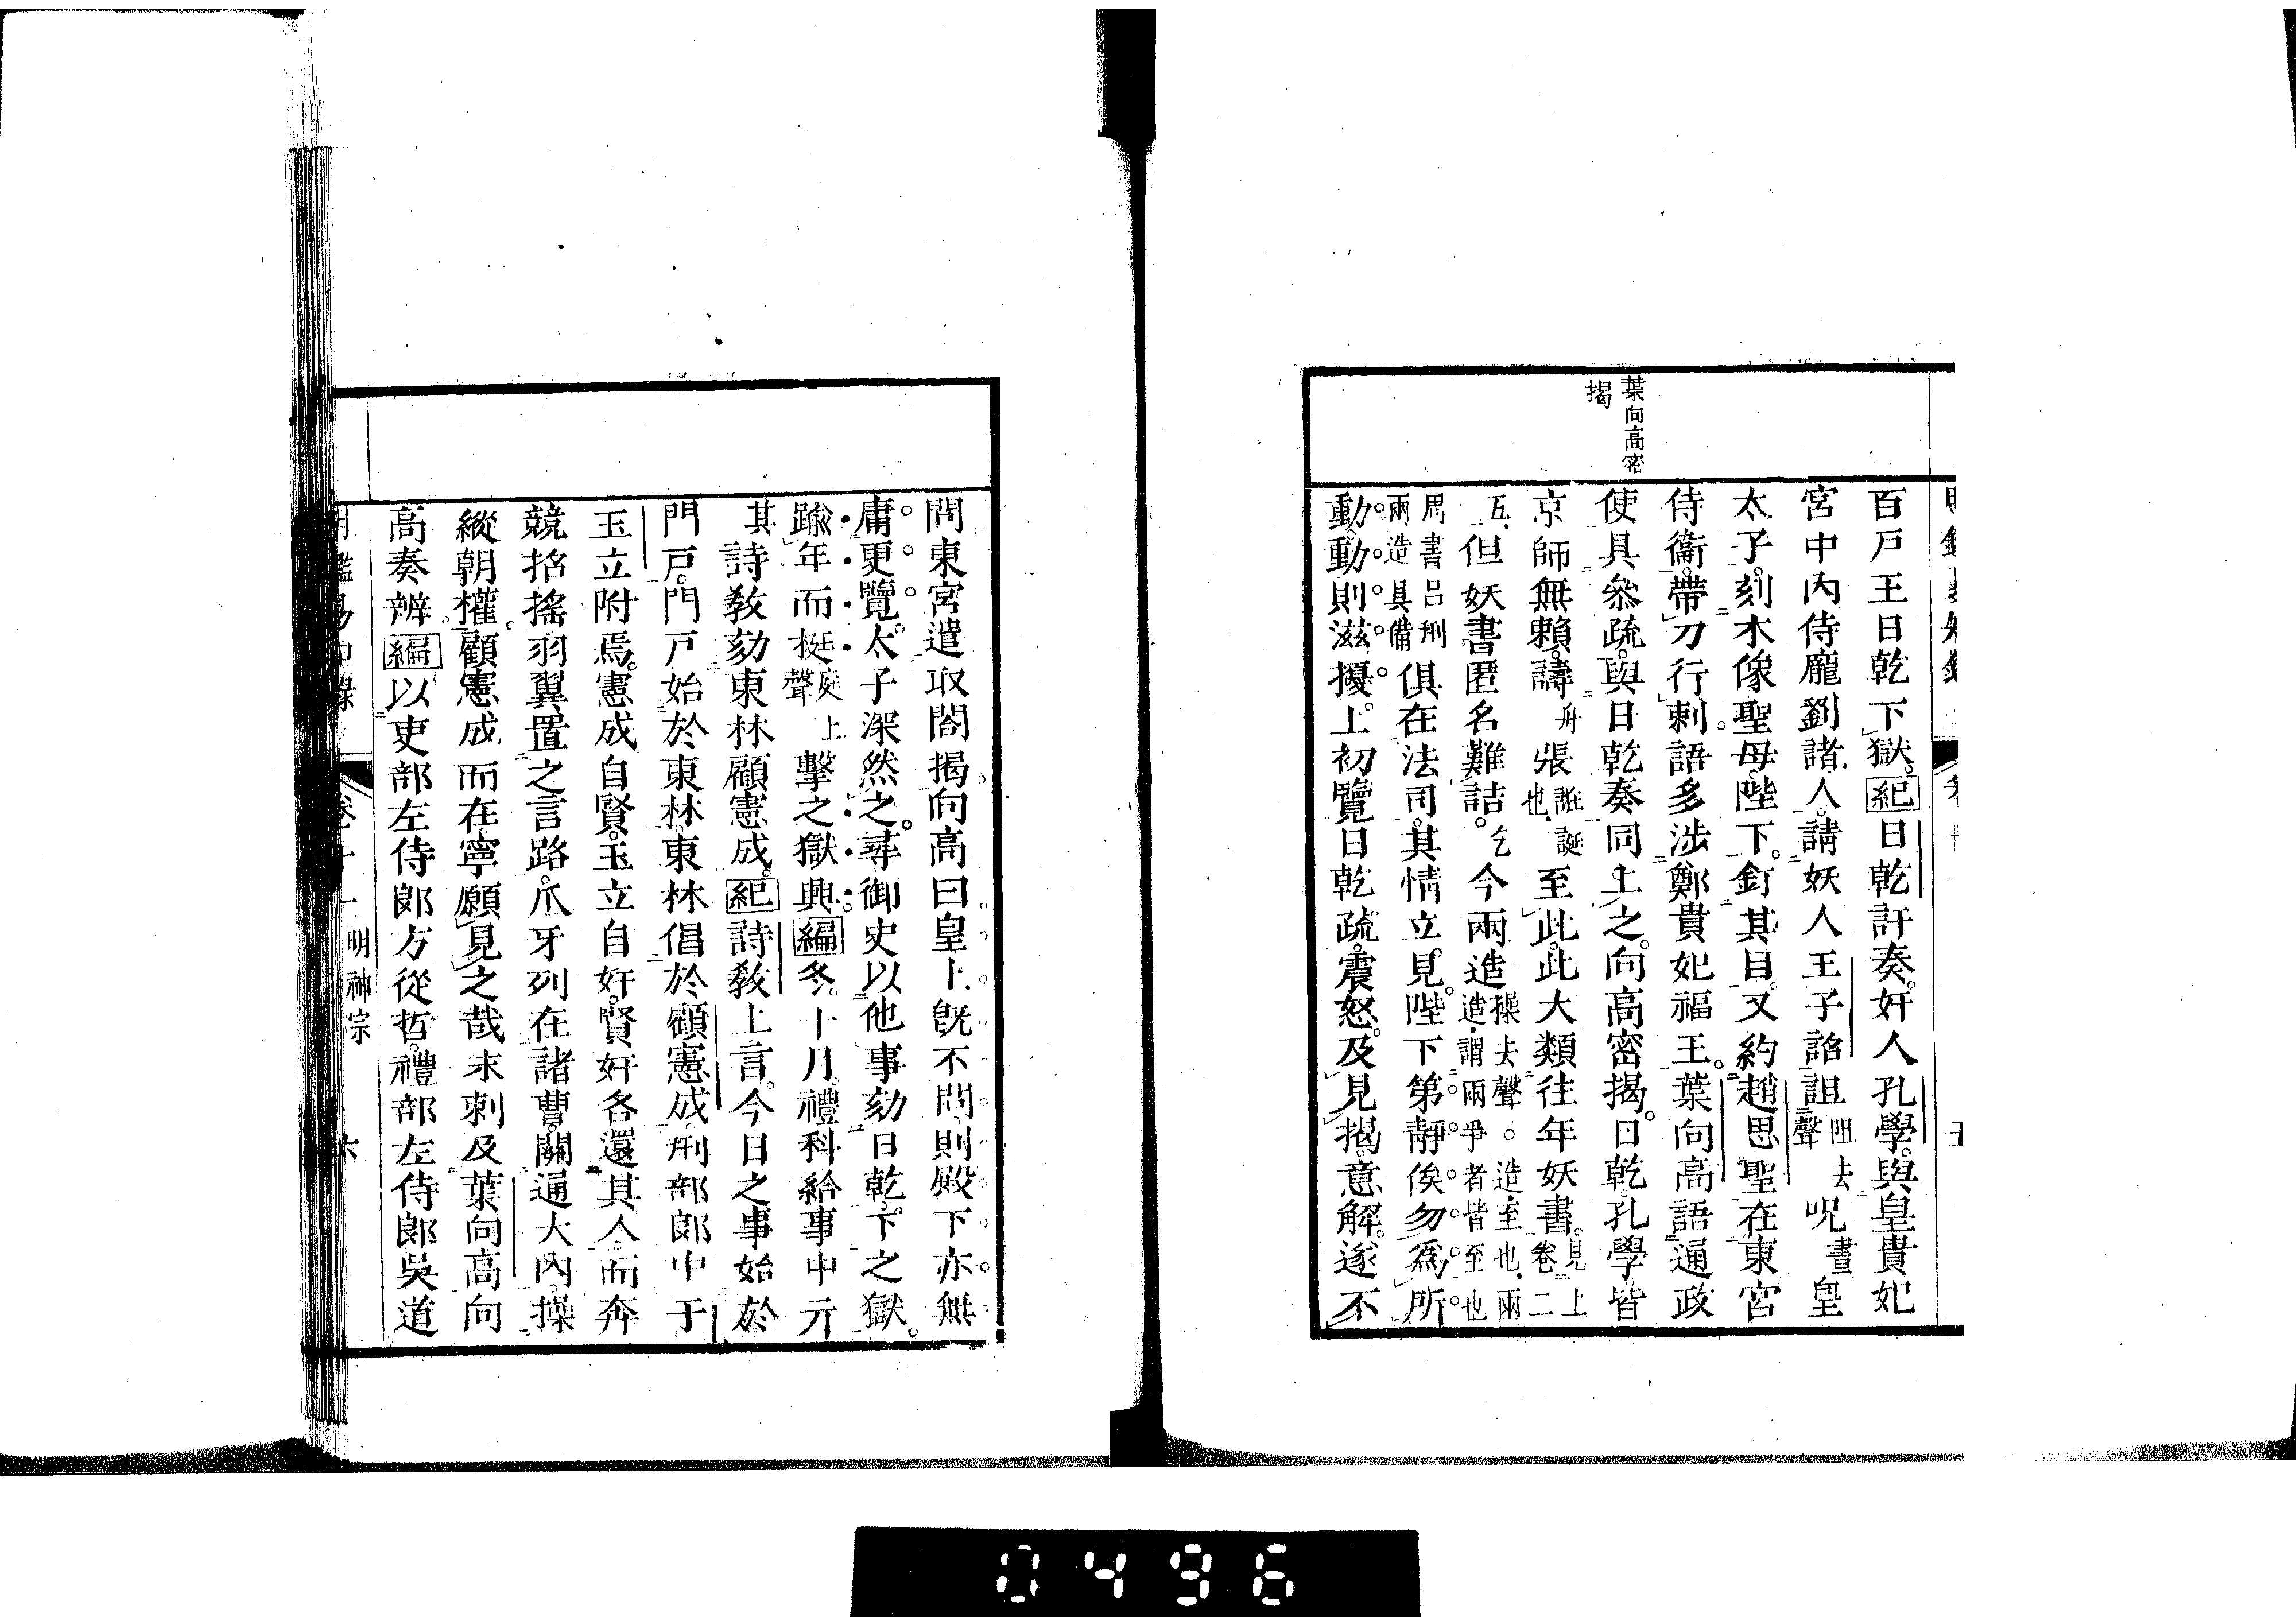 葉向高密
揭
百戸王日乾下獄。紀日乾訐奏。奸人孔學。與皇貴妃
宮中内侍龐劉諸人。請妖人王子詔詛阻去聲呪晝皇
太子。刻木像聖母。陛下。釘其目。又約趙思聖在東宮
侍衞。帶刀行刺。語多涉鄭貴妃福王。葉向高語通政
使具參疏。與日乾奏同上之。向高密揭。日乾孔學皆
京師無賴。譸舟張誑誕也。至此。此大類往年妖書。見上卷二
五。但妖書匿名難詰。乞今兩造操去聲。造至也。兩造謂兩爭者皆至也
周書呂刑兩造具備俱在法司。其情立見。陛下第靜俟勿爲所
動。動則滋擾。上初覽日乾疏。震怒。及見揭。意解。遂不
問東宮遣取閣揭向高曰皇上旣不問。則殿下亦無
庸更覽。太子深然之。尋御史以他事劾日乾。下之獄。
踰年而挺廷上聲擊之獄興。編冬。十月。禮科給事中亓
其詩敎劾東林顧憲成。紀詩敎上言。今日之事始於
門戸。門戸始於東林。東林倡於顧憲成。刑部郎中于
玉立附焉。憲成自賢。玉立自奸。賢奸各還其人。而奔
競招搖羽翼置之言路。爪牙列在諸曹。關通大内。操
縱朝權。顧憲成而在。寧願見之哉末刺及葉向高向
高奏辨編以吏部左侍郎方從哲。禮部左侍郎吳道
卷十一 明神宗 六
0496